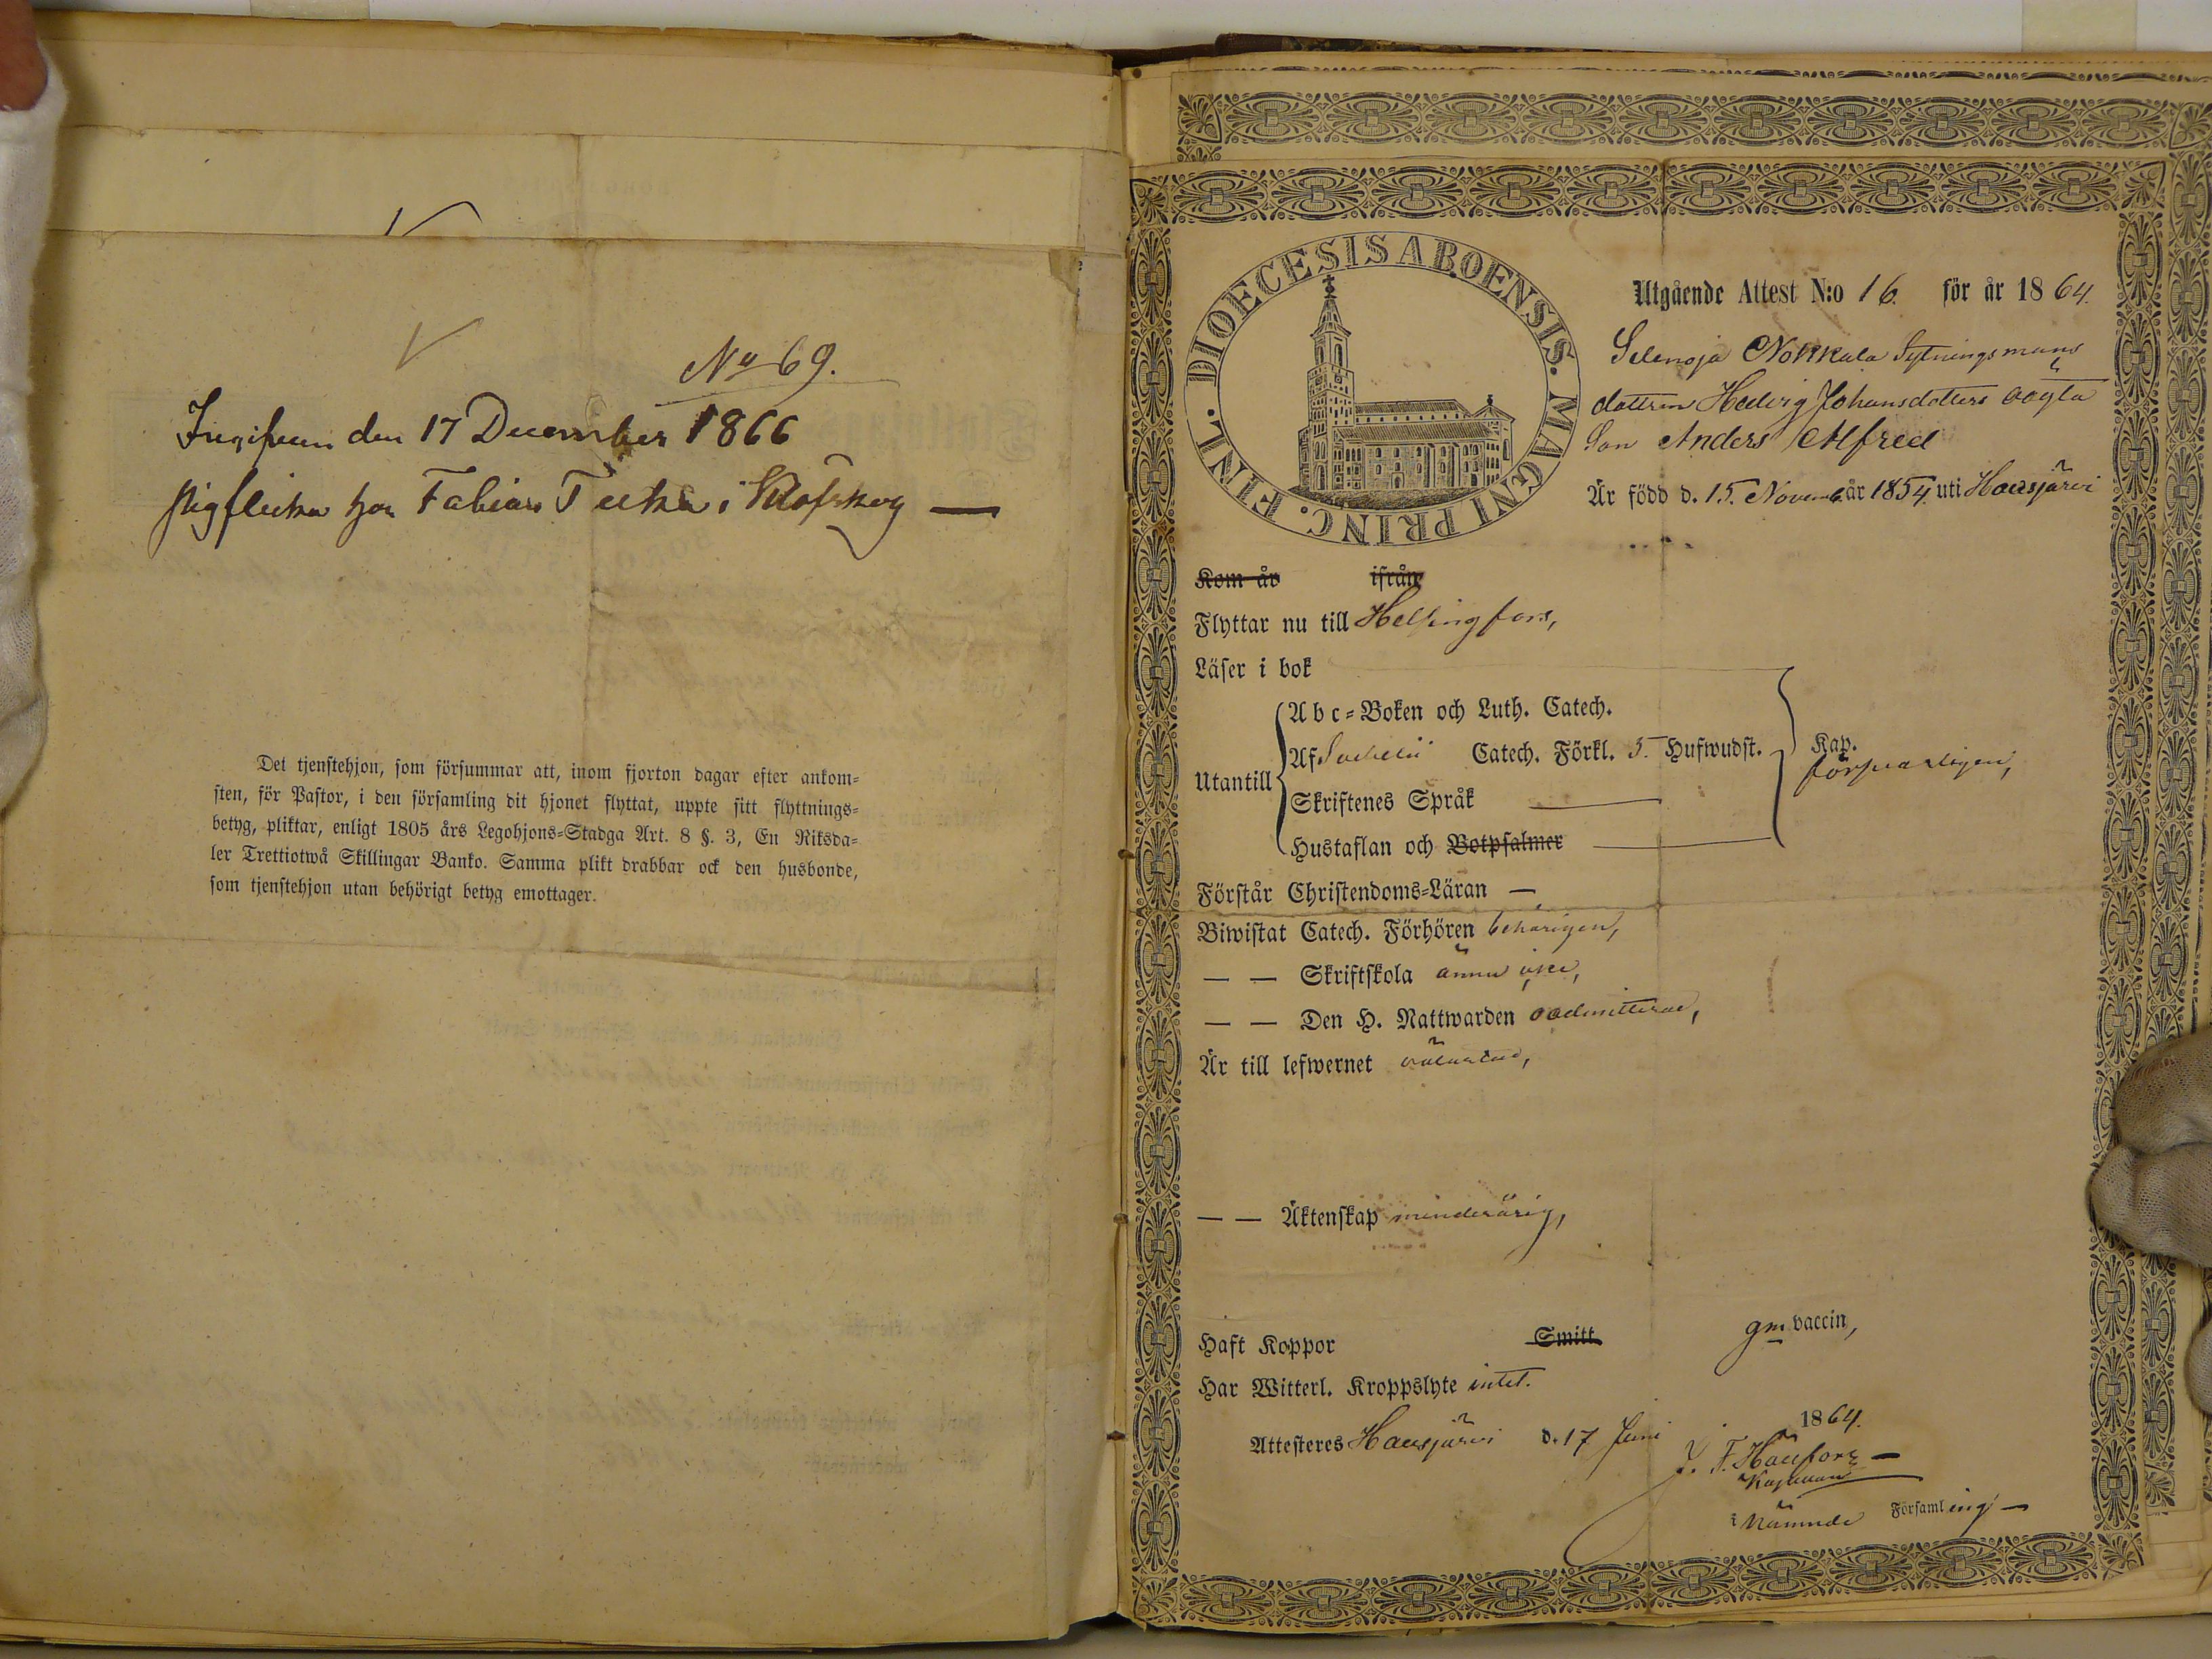 No 69.
Ingifven den 17 December 1866
pigflicka hos Fabian i
Det tjenstehjon, som försummar att, inom fjorton dagar efter ankom-
sten, för Pastor, i den församling dit hjonet flyttat, uppte sitt flyttnings-
betyg, pliktar, enligt 1805 års Legohjons-Stadga Art. 8 §. 3, En Riksda-
ler Trettiotwå Skillingar Banko. Samma plikt drabbar ock den husbonde,
som tjenstehjon utan behörigt betyg emottager.
DIOECESIS ABOENSIS. MAGNI PRINC. FINL.
Utgående Attest N:o 16. för år 1864.
Selenoja Nokkala Sytningsmans
dottren Hedvig Johansdotters oägta
Son Anders Alfred
Är född d. 15. Novemb. år 1854 uti Hausjärvi
Kom år ifrån
Flyttar nu till Helsingfors,
Läser i bok
Abc-Boken och Luth. Catech.
Af Catech. Förkl. 5. Hufwudst. Kap.
försvarligen,
Utantill
Skriftenes Språk —
Hustaflan och Botpsalmer —
Förstår Christendoms-Läran —
Biwistat Catech. Förhören behörigen,
— — Skriftskola ännu icke,
— — Den H. Nattwarden oadmitterad,
Är till lefwernet
— — Äktenskap minderårig,
Haft Koppor Smitt gm vaccin,
Har Witterl. Kroppslyte intet.
Attesteres Hausjärvi d. 17 Juni 1864.
J. F. Hällfors —
Kaplan
i nämnde Församling —